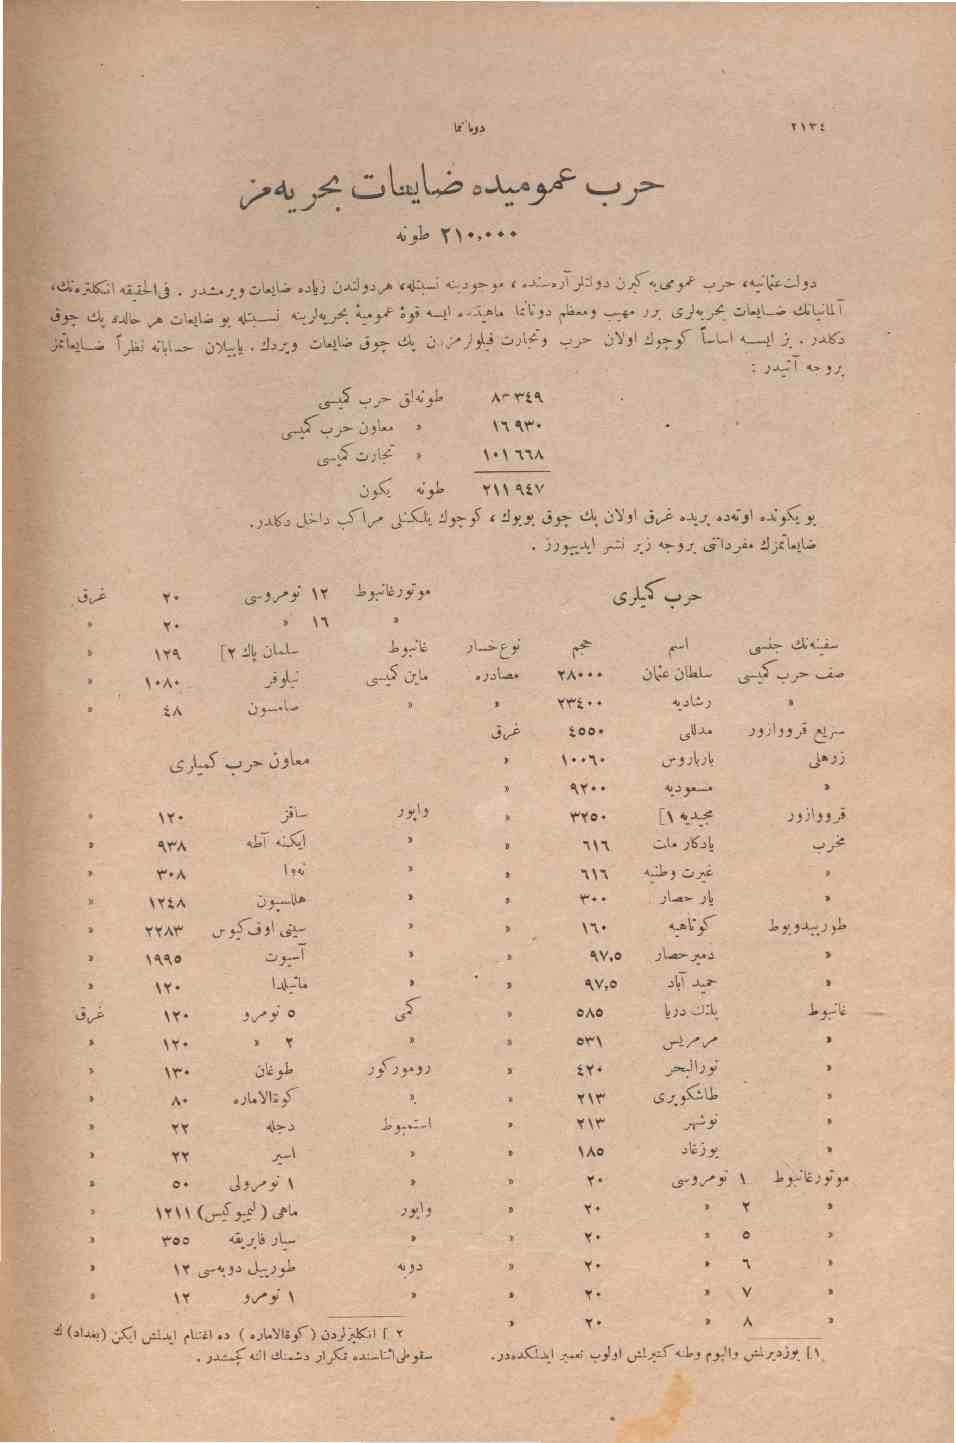 ٢١٣٤
دونانما
حرب عموميده ضايعات بحريه‌مز
٢١٠,٠٠٠ طونه
دولت عثمانيه، حرب عمومى‌يه كيرن دولتلر آره‌سنده ، موجودينه نسبتله، هر دولتدن زياده ضايعات ويرمشدر . فى‌الحقيقه انكلتره‌نك،
آلمانيانك ضايعات بحريه‌لرى برر مهيب ومعظم دونانما ماهيتنده ايسه قوهٔ عموميهٔ بحريه‌لرينه نسبتله بو ضايعات هر حالده پك چوق
دكلدر . بز ايسه اساساً كوچوك اولان حرب وتجارت فيلولرمزدن پك چوق ضايعات ويردك . ياپيلان حسابانه نظراً ضايعاتمز
بروجه آتيدر :
٨٣٣٤٩ طونه‌لق حرب كميسى
١٦٩٣٠ » معاون حرب كميسى
١٠١٦٦٨ » تجارت كميسى
٢١١٩٤٧ طونه يكون
بو يكونده اوته‌ده بريده غرق اولان پك چوق بويوك ، كوچوك يلكنلى مراكب داخل دكلدر.
ضايعاتمزك مفرداتنى بروجه زير نشر ايدييورز .
حرب كميلرى
سفينه‌نك جنسى اسم حجم نوع خسار
صف حرب كميسى سلطان عثمان ٢٨٠٠٠ مصادره
» رشاديه ٢٣٤٠٠ »
سريع قرووازور مدللى ٤٥٥٠ غرق
زرهلى بارباروس ١٠٠٦٠ »
» مسعوديه ٩٢٠٠ »
قرووازور مجيديه ١] ٣٢٥٠ »
مخرب يادكار ملت ٦١٦ »
» غيرت وطنيه ٦١٦ »
» يار حصار ٣٠٠ »
طورپيدوبوط كوتاهيه ١٦٠ »
» دمير حصار ٩٧,٥ »
» حميد آباد ٩٧,٥ »
غانبوط پلنك دريا ٥٨٥ »
» مرمريس ٥٣١ »
» نورالبحر ٤٢٠ »
» طاشكوپرى ٢١٣ »
» نوشهر ٢١٣ »
» يوزغاد ١٨٥ »
موتورغانبوط ١ نومروسى ٢٠ »
» ٢ » ٢٠ »
» ٥ » ٢٠ »
» ٦ » ٢٠ »
» ٧ » ٢٠ »
» ٨ » ٢٠ »
١] يوزديرلمش واليوم وطنه كتيرلمش اولوب تعمير ايدلمكده‌در.
موتورغانبوط ١٢ نومروسى ٢٠ غرق
» ١٦ » ٢٠ »
غانبوط سلمان پاك ٢] ١٢٩ »
ماين كميسى نيلوفر ١٠٨٠ »
» صامسون ٤٨ »
معاون حرب كميلرى
واپور ساقز ١٢٠ »
» ايكنه آطه ٩٣٨ »
» ٣٠٨ »
» هللسپون ١٢٤٨ »
» سيتى اوف كيوس ٢٢٨٣ »
» آسيوت ١٩٩٥ »
» ماتيلدا ١٢٠ »
كمى ٥ نومرو ١٢٠ غرق
» ٢ » ١٢٠ »
رومورکور طوغان ١٣٠ »
» كوةالاماره ٨٠ »
استمبوط دجله ٢٢ »
» اسير ٢٢ »
» ١ نومرولى ٥٠ »
واپور ماهى ( ليمبوكيس) ١٢١١ »
» سيار فابريقه ٣٥٥ »
دوبه طورپيل دوبه‌سى ١٢ »
» ١ نومرو ١٢ »
٢ ] انكليزلردن ( كوةالاماره ) ده اغتنام ايدلمش ايكن (بغداد) ك
سقوطى اثناسنده تكرار دشمنك الله كچمشدر .